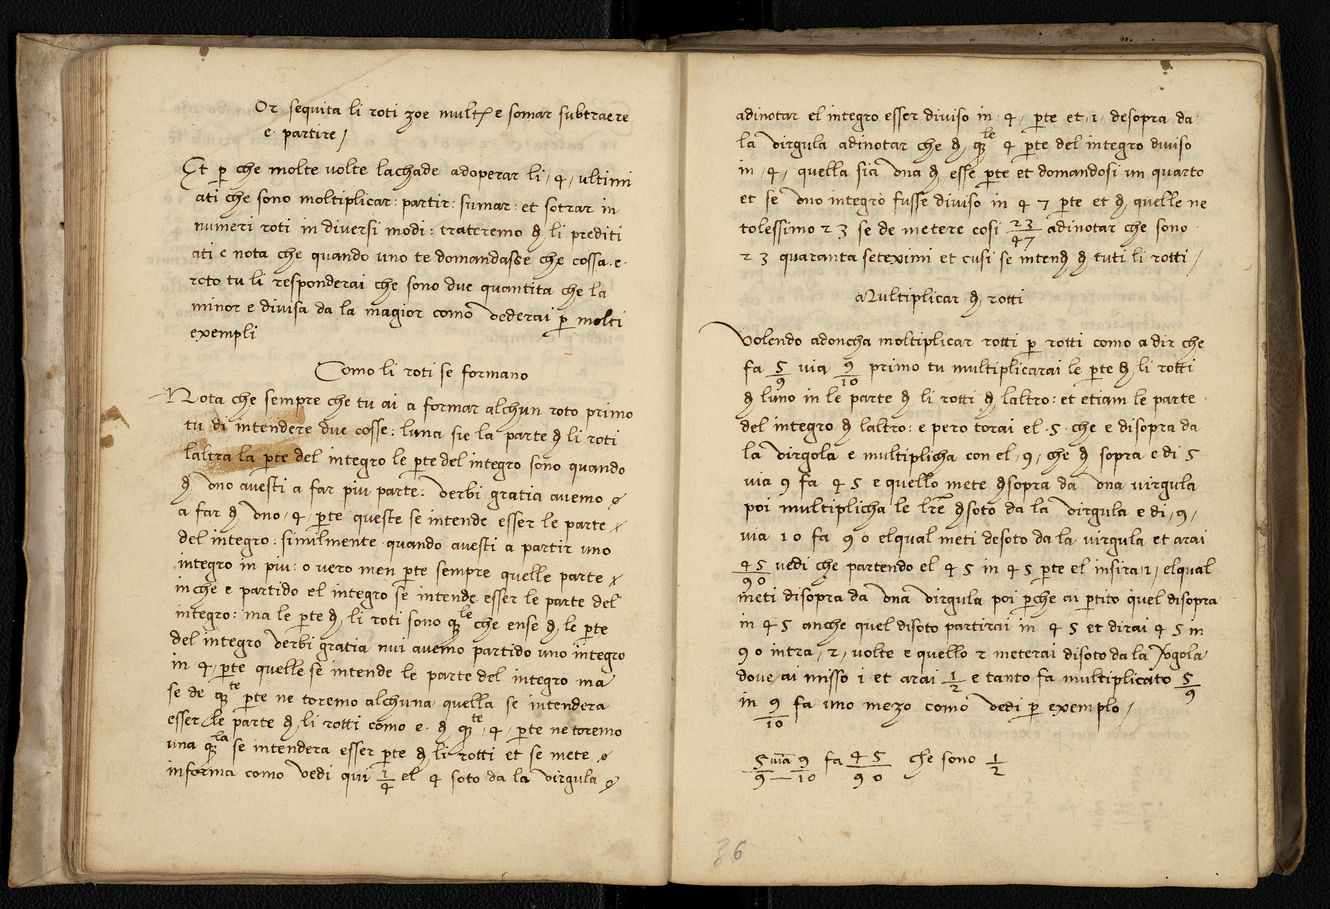 Or sequita li roti zoe mult e somar subtraere
e partire /
Et p che molte volte lachade adoperar li / 4 / ultimi
ati che sono moltiplicar : partir : sumar : et sotrar in
numeri roti in diversi modi : trateremo d li prediti
ati e nota che quando uno te domandasse che cossa . e .
roto tu li responderai che sono due quantita che la
minor e divisa da la magior como vederai p molti
exempli
Como li roti se formano
Nota che sempre che tu ai a formar alchun roto primo
tu di intendere due cosse : luna sie la parte d li roti
laltra la pte del integro le pte del integro sono quando
d vno avesti a far piu parte : verbi gratia avemo
a far d vno / 4 / pte queste se intende esser le parte
del integro : similmente quando avesti a partir uno
integro in piu : o vero men pte sempre quelle parte
in che e partido el integro se intende esser le parte del
integro : ma le pte d li roti sono q̃le che ense d le pte
del integro verbi gratia nui avemo partido uno integro
in 4 / pte quelle se intende le parte del integro ma
se de q̃te pte ne toremo alchuna quella se intendera
esser le parte d li rotti como e . d q̃te / 4 / pte ne toremo
una q̃la se intendera esser pte d li rotti et se mete
informa como vedi qui 1/4 el 4 soto da la virgula
adinotar el integro esser diviso in . 4 / pte et / 1 / desopra da
la virgula adinotar che d q̃le 4 pte del integro diviso
in / 4 / quella sia vna d esse pte et domandosi un quarto
et se vno integro fusse diviso in 4 7 pte et d quelle ne
tolessimo 2 3 se de metere cosi 23/47 adinotar che sono
2 3 quaranta seteximi et cusi se intend d tuti li rotti /
Multiplicar d rotti
Volendo adoncha moltiplicar rotti p rotti como a dir che
fa 5/9 via 9/10 primo tu multiplicarai le pte d li rotti
d luno in le parte d li rotti d laltro : et etiam le parte
del integro d laltro : e pero torai el . 5 . che e disopra da
la virgola e multiplicha con el / 9 / che d sopra e di 5
via 9 fa 4 5 e quello mete dsopra da vna virgula
poi multiplicha le lre dsoto da la virgula e di / 9 /
via 10 fa 9 0 elqual meti desoto da la virgula et arai
45/90 vedi che partendo el 4 5 in 4 5 pte el insira / 1 / elqual
meti disopra da vna virgula poi pche ai ptito quel disopra
in 4 5 anche quel disoto partirai in 4 5 et dirai 4 5 in
9 0 intra / 2 / volte e quello 2 meterai disoto da la vgola
dove ai misso 1 et arai 1/2 e tanto fa multiplicato 5/9
in 9/10 fa uno mezo como vedi p exemplo /
5/9 uia 9/10 fa 45/90 che sono 1/2
36